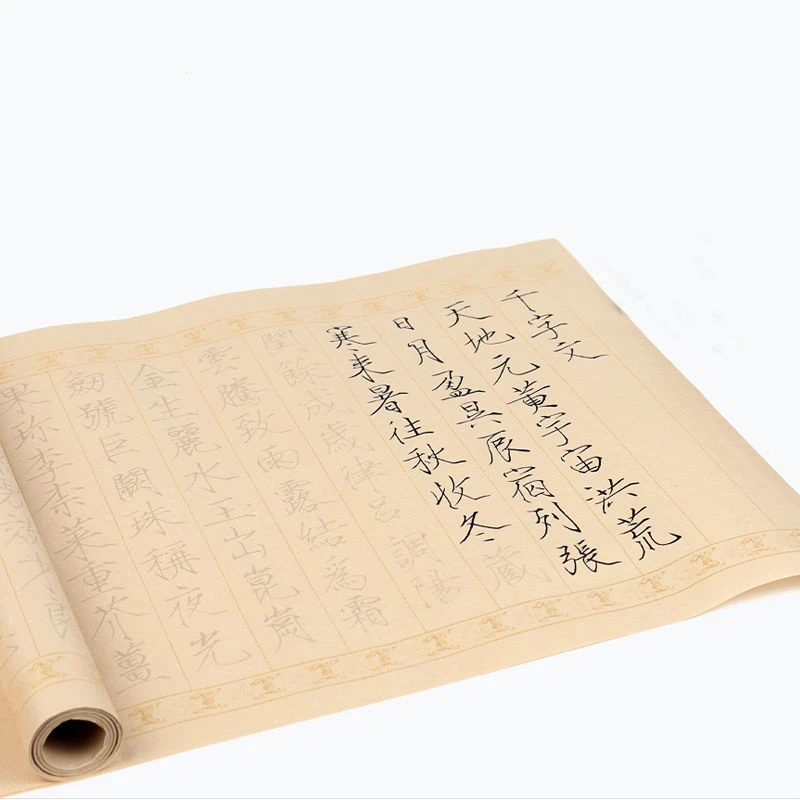 千字文
天地元黃宇宙洪荒
日月盈昃辰宿列張
寒来暑往秋收冬藏
閏餘成歲律呂調陽
雲騰致雨露結爲霜
金生麗水玉出崑崗
劒號巨闕珠稱夜光
果珍李柰菜重芥薑